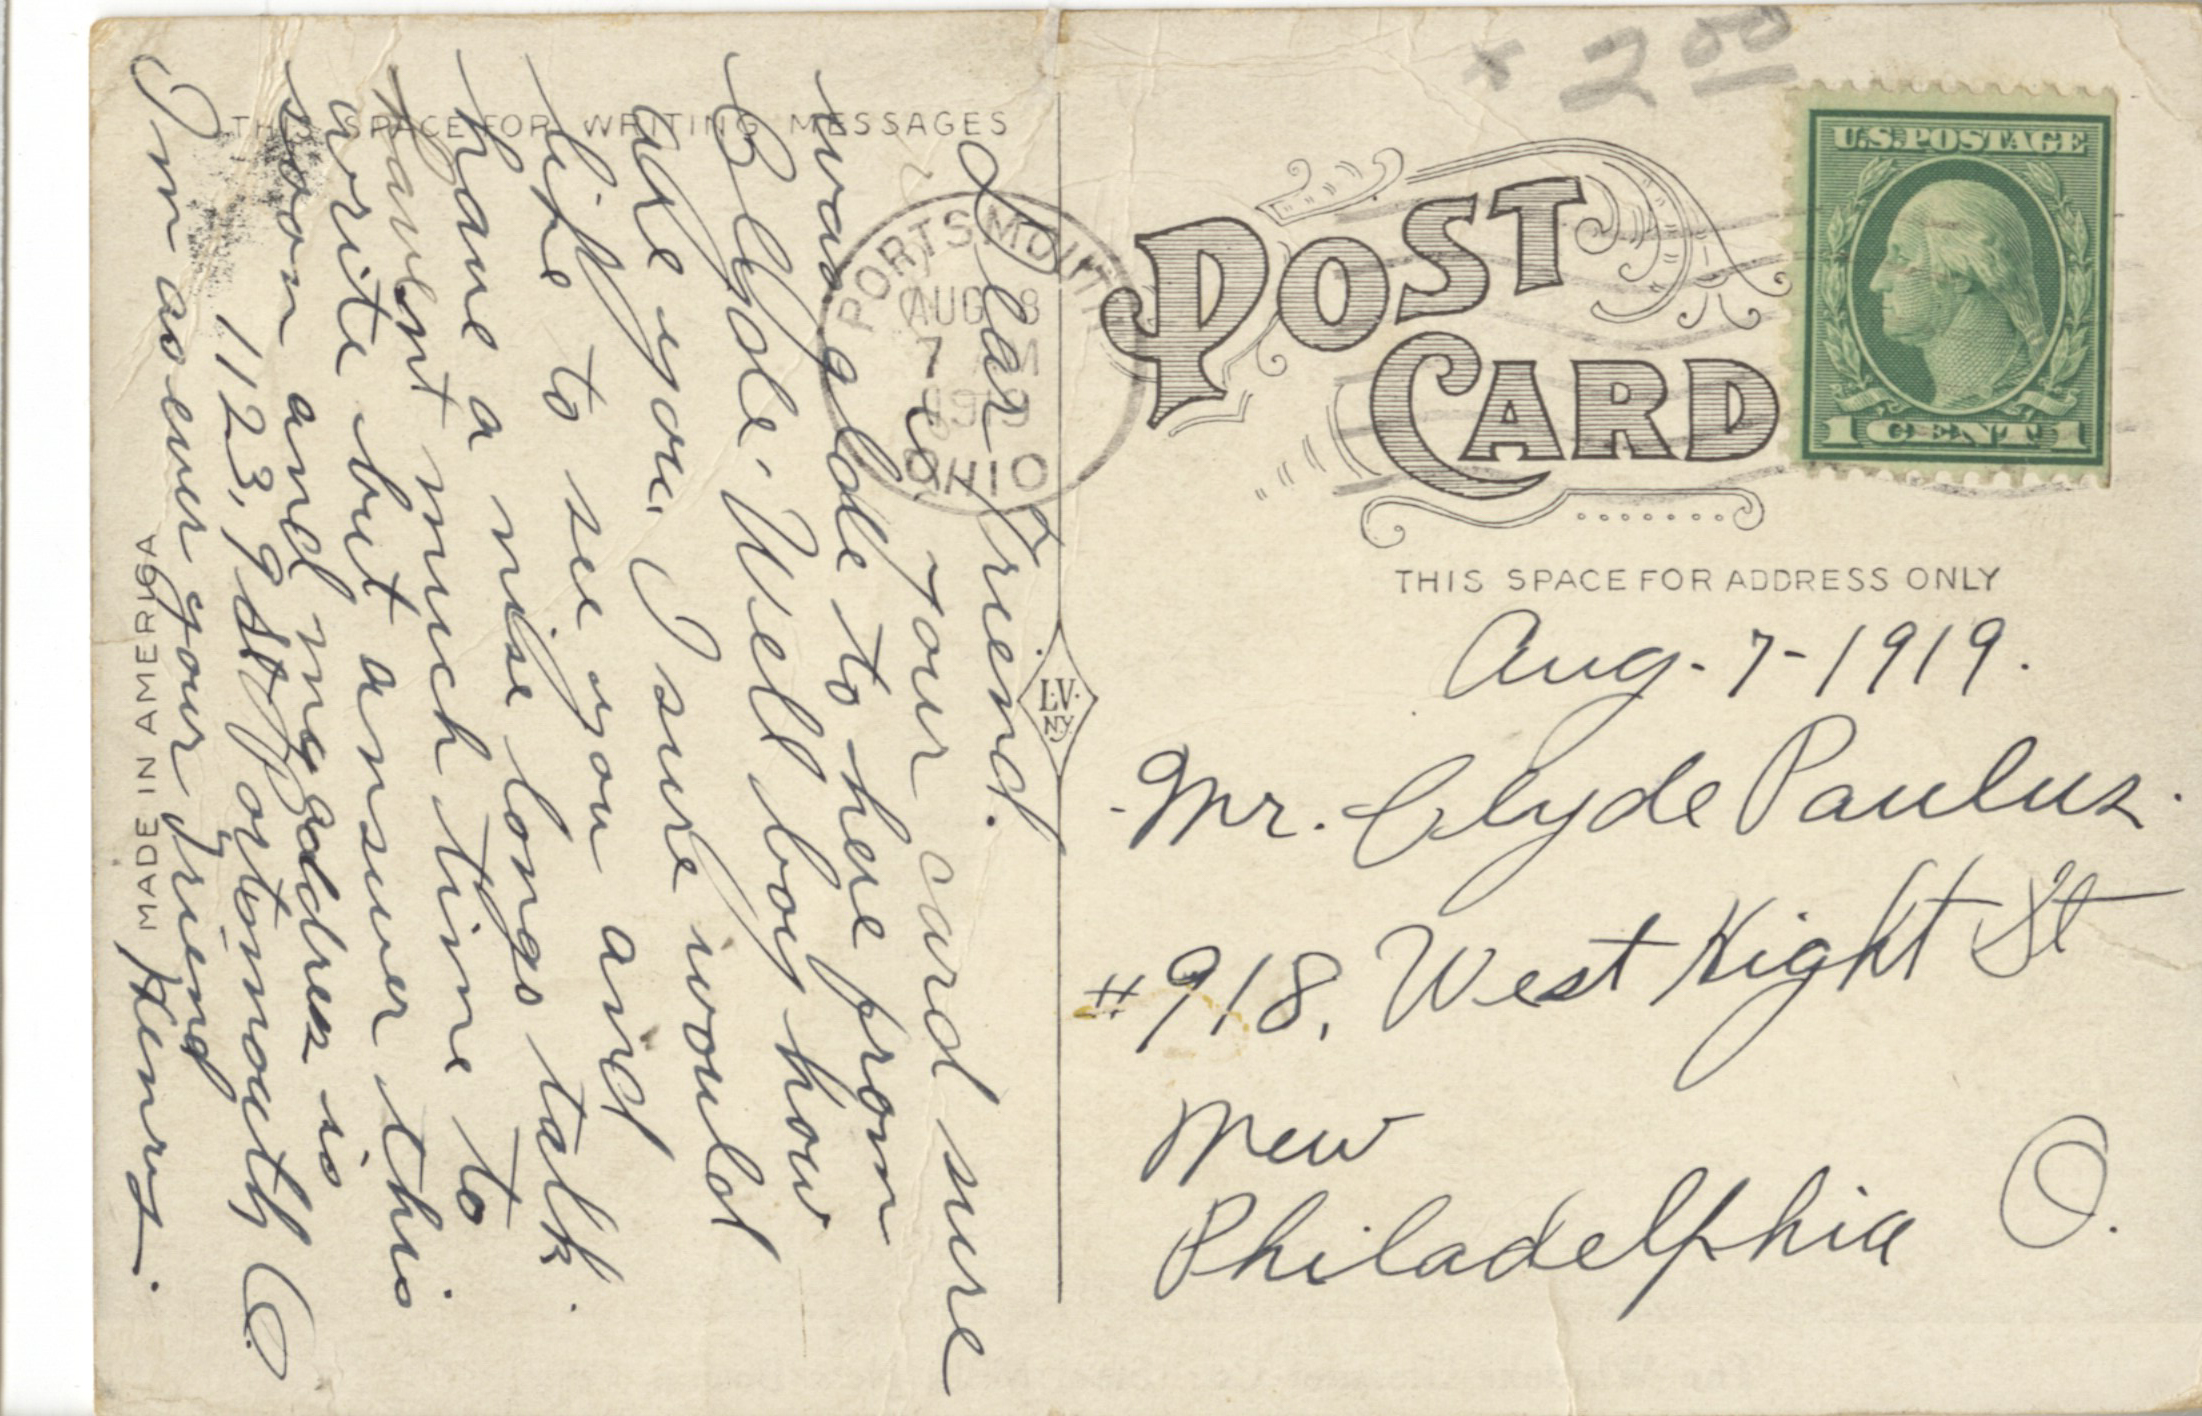 × 2 00
THIS SPACE FOR WRITING MESSAGES
PORTSMOUTH
AUG 8
7 AM
1919
OHIO
POST
CARD
U.S. POSTAGE
1 CENT 1
THIS SPACE FOR ADDRESS ONLY
Aug. 7-1919.
Mr. Clyde Paulus.
#918, West High St
New
Philadelphia O.
L.V.
NY
MADE IN AMERICA
Dear Friend.
Your card sure
was glode to here from
Clyde. Well boy how
are you. I sure would
like to see you and
have a nise longo talk.
havent much time to
write but answer this.
soon and my addres is
1123, 9 St Portsmouth O.
I'm as ever your Friend
Henry.